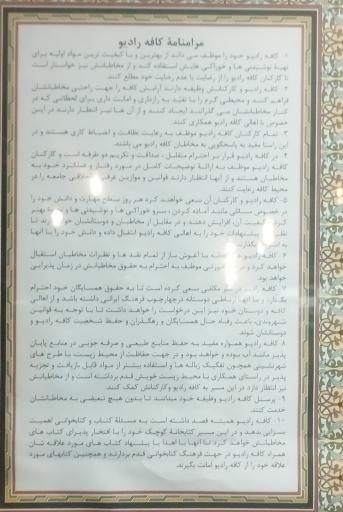 مرامنامهٔ کافه رادیو
۱- کافه رادیو خود را موظف می داند از بهترین و با کیفیت ترین مواد اولیه برای
تهیهٔ نوشیدنی ها و خوراکی هایش استفاده کند و از مخاطبانش نیز خواستار است
تا کارکنان کافه رادیو را از رضایت یا عدم رضایت خود مطلع کنند.
۲- کافه رادیو و کارکنانش وظیفه دارند آرامش کافه را جهت راحتی مخاطبانشان
فراهم کنند و محیطی گرم را با تقید به رازداری و امانت داری برای لحظاتی که در
کنار مخاطبانشان می گذرانند ایجاد کنند و از آن ها نیز انتظار دارند در این
خصوص با اهالی کافه رادیو همکاری کنند.
۳- تمام کارکنان کافه رادیو موظف به رعایت نظافت و انضباط کاری هستند و در
این راستا مقید به پاسخگویی به مخاطبان کافه رادیو می باشند.
۴- در کافه رادیو قرار بر احترام متقابل، صداقت و تکریم دو طرفه است و کارکنان
کافه رادیو موظف به ارائهٔ توضیحات کامل در مورد رفتار و عملکرد خود به
مخاطبان هستند و از آنها انتظار دارند قوانین و موازین عرفی اخلاقی جامعه را در
محیط کافه رعایت کنند.
۵- کافه رادیو و کارکنان آن سعی خواهند کرد هر روز سطح مهارت و دانش خود را
در خصوص مسائلی مانند آماده کردن، سرو خوراکی ها و نوشیدنی ها و بهتر
کیفیت آن، افزایش دهند و در مقابل از مخاطبان و دوستانشان خواهند تا
پیشنهادات خود را به اهالی کافه رادیو انتقال داده و دانش خود را با آنها
به اشتراک بگذارند.
۶- کافه رادیو با آغوش باز از تمام نقد ها و نظرات مخاطبان استقبال
خواهد کرد و موظف به احترام به حقوق مخاطبانش در زمان پذیرایی
خواهد بود.
۷- کافه رادیو مکانی سعی کرده است تا به حقوق همسایگان خود احترام
بگذارد و با آنها ارتباطی دوستانه در چهارچوب فرهنگ ایرانی داشته باشد و از اهالی
کافه و دوستان خود نیز این درخواست را خواهد داشت تا با توجه به قوانین
شهروندی، باعث رفاه حال همسایگان و رهگذران و حفظ شخصیت کافه رادیو و
دوستانشان شوند.
۸- کافه رادیو همواره مقید به حفظ منابع طبیعی و صرفه جویی در منابع پایان
پذیر مانند آب بوده و خواهد بود و در جهت حفاظت از محیط زیست با طرح های
شهرنشینی همچون تفکیک زباله ها و استفاده بیشتر از مواد قابل بازیافت و تجزیه
پذیر در راستای همکاری با محیط زیست خویش قدم برداشته است و از مخاطبانش
نیز انتظار دارد در این مسیر به کافه رادیو و کارکنانش کمک کنند.
۹- پرسنل کافه رادیو وظیفه خود میدانند تا بدون هیچ تبعیضی به مخاطبانشان
خدمت کنند.
۱۰- کافه رادیو همیشه قصد داشته است به مسئلهٔ کتاب و کتابخوانی اهمیت
بسزایی بدهد و در این مسیر کتابخانهٔ کوچک خود را با افتخار پذیرای کتاب های
مخاطبانش خواهد کرد تا آنها با اهدا یا پیشنهاد کتاب های مورد علاقه شان
همراه کافه رادیو در جهت فرهنگ کتابخوانی قدم بردارند و همچنین کتابهای مورد
علاقه خود را از کافه رادیو امانت بگیرند.